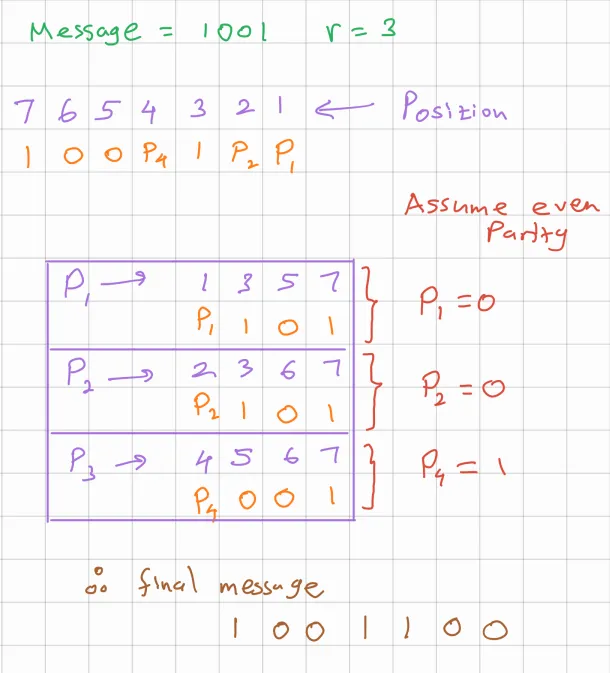 Message = 1001 r = 3
7 6 5 4 3 2 1 ← Position
1 0 0 P4 1 P2 P1
Assume even
Parity
P1 → 1 3 5 7
P1 1 0 1
P1 = 0
P2 → 2 3 6 7
P2 1 0 1
P2 = 0
P3 → 4 5 6 7
P4 0 0 1
P4 = 1
∴ final message
1 0 0 1 1 0 0